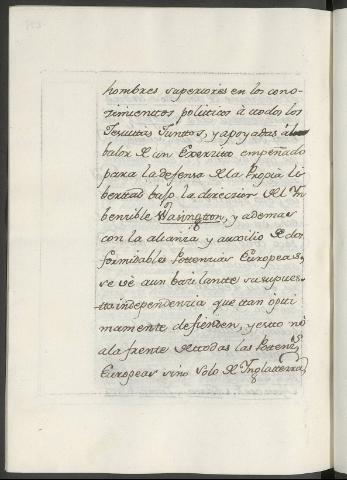 hombres superiores en los cono-
zimientos politicos à todos los
Jesuitas Juntos, y apoyadas al
balor de un Exerzito empeñado
para la defensa de la Propia li
bertad bajo la direczion del In
benzible Wasington, y ademas
con la alianza y auxilio de dos
formidables Potenzias Europeas,
se vè aun bazilante su supues-
ta independenzia que tan opti
mamente defienden, y esto no
a la frente de todas las Potenz.s
Europeas sino solo de Inglaterra,